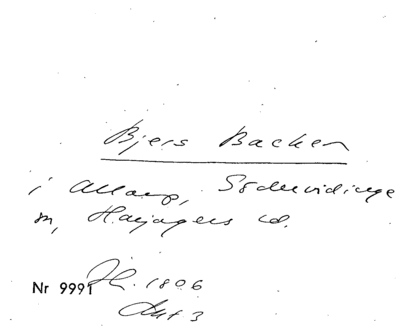 Bjers Backen
i Allarp, Södervidinge
sn, Harjagers hd.
Nr 9991 1806
Akt 3